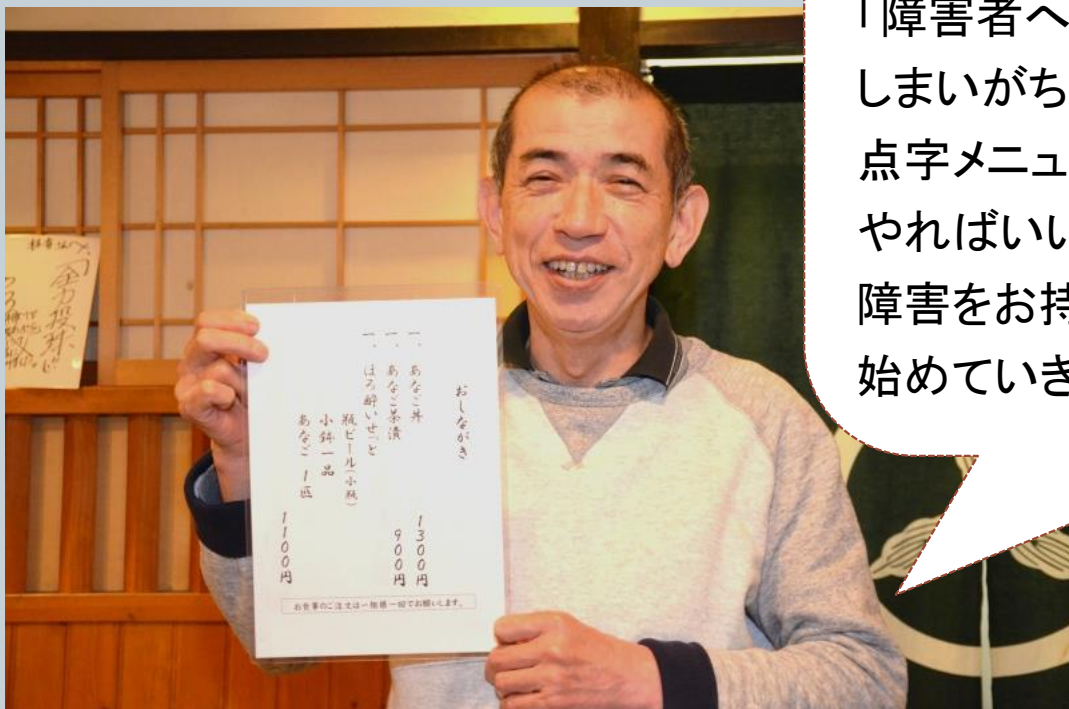 「障害者へ
しまいがち
点字メニュ
やればいい
障害をお持
始めていき
おしながき
一、あなご丼 1300円
一、あなご茶漬 900円
一、ほろ酔いせっと
瓶ビール(小瓶)
小鉢一品
あなご 1匹
1100円
お食事のご注文は一組様一回でお願いします。
全力投球